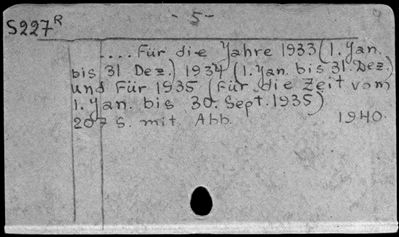 - 5 -
S227R
.... Für die Jahre 1933 (1. Jan.
bis 31 Dez.) 1934 (1. Jan. bis 31 Dez.)
und Für 1935 (Für die Zeit vom
1. Jan. bis 30. Sept. 1935)
207 S. mit Abb. 1940.